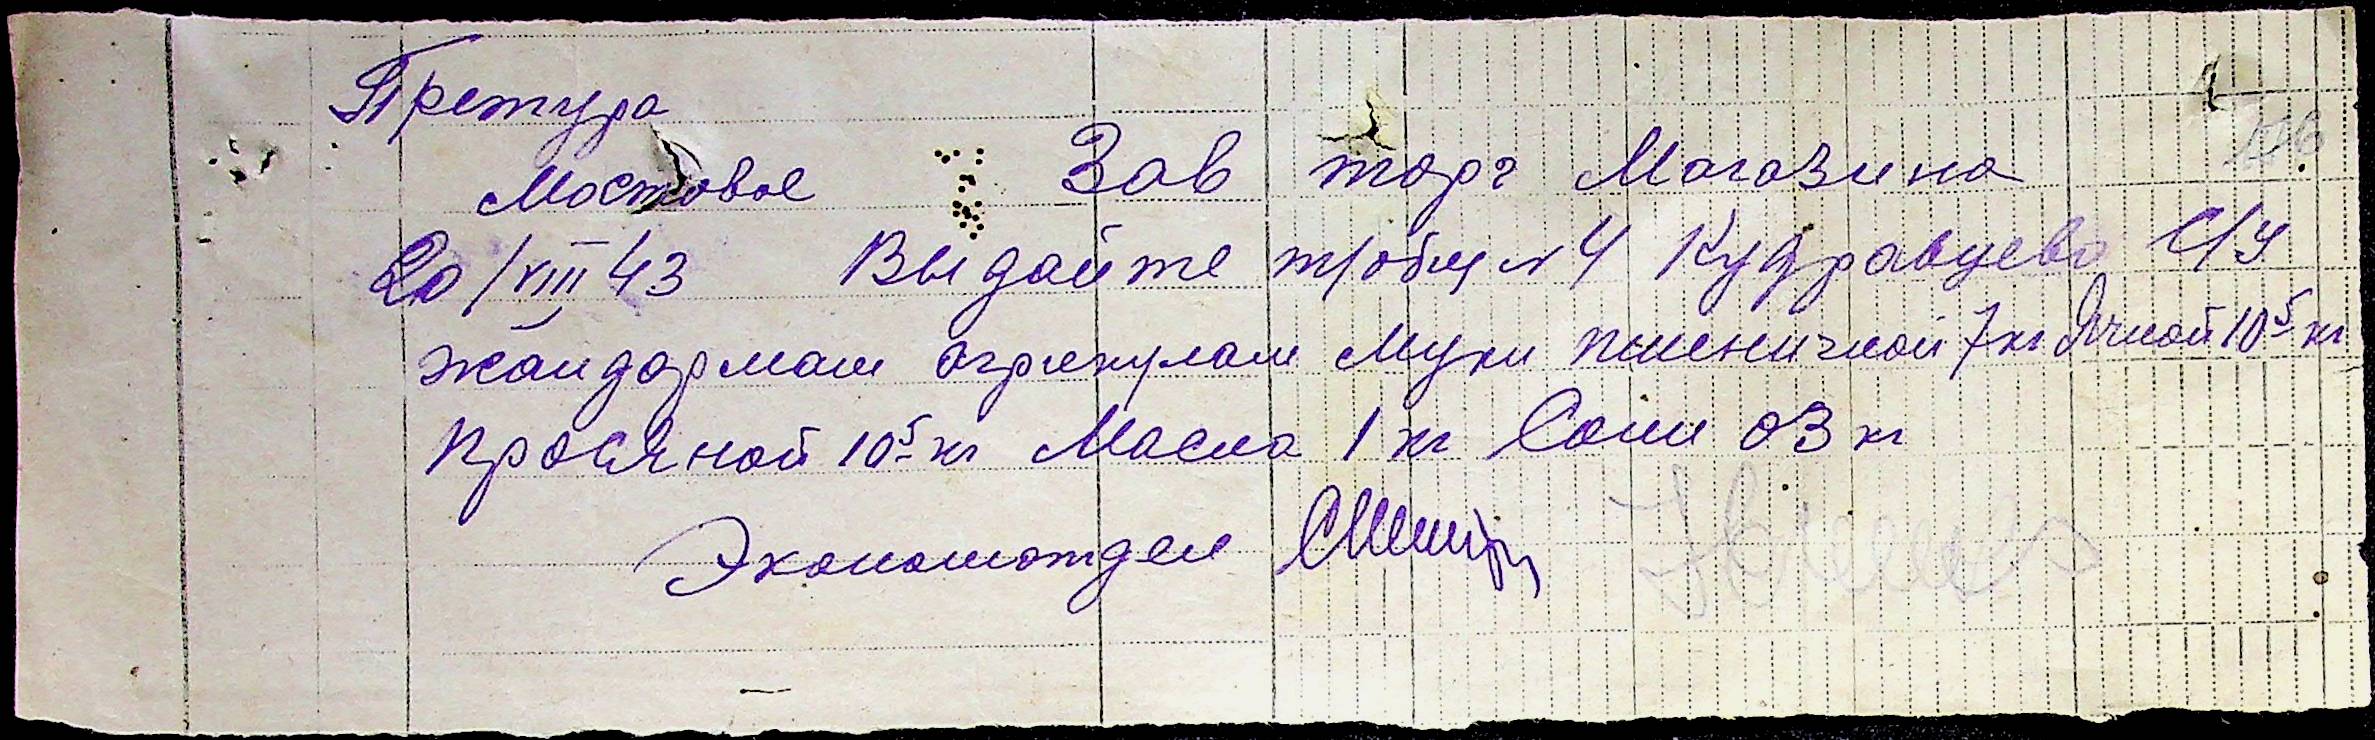 Претура
Мостовое Зав торг Магазина
20/VIII 43 Выдайте т/общ N4 Кудравцево С/У
жандармам агрикулам Муки пшеничной 7 кг Ячной 10⁵ кг
Просяной 10⁵ кг Масла 1 кг Соли 03 кг
Экономотдел